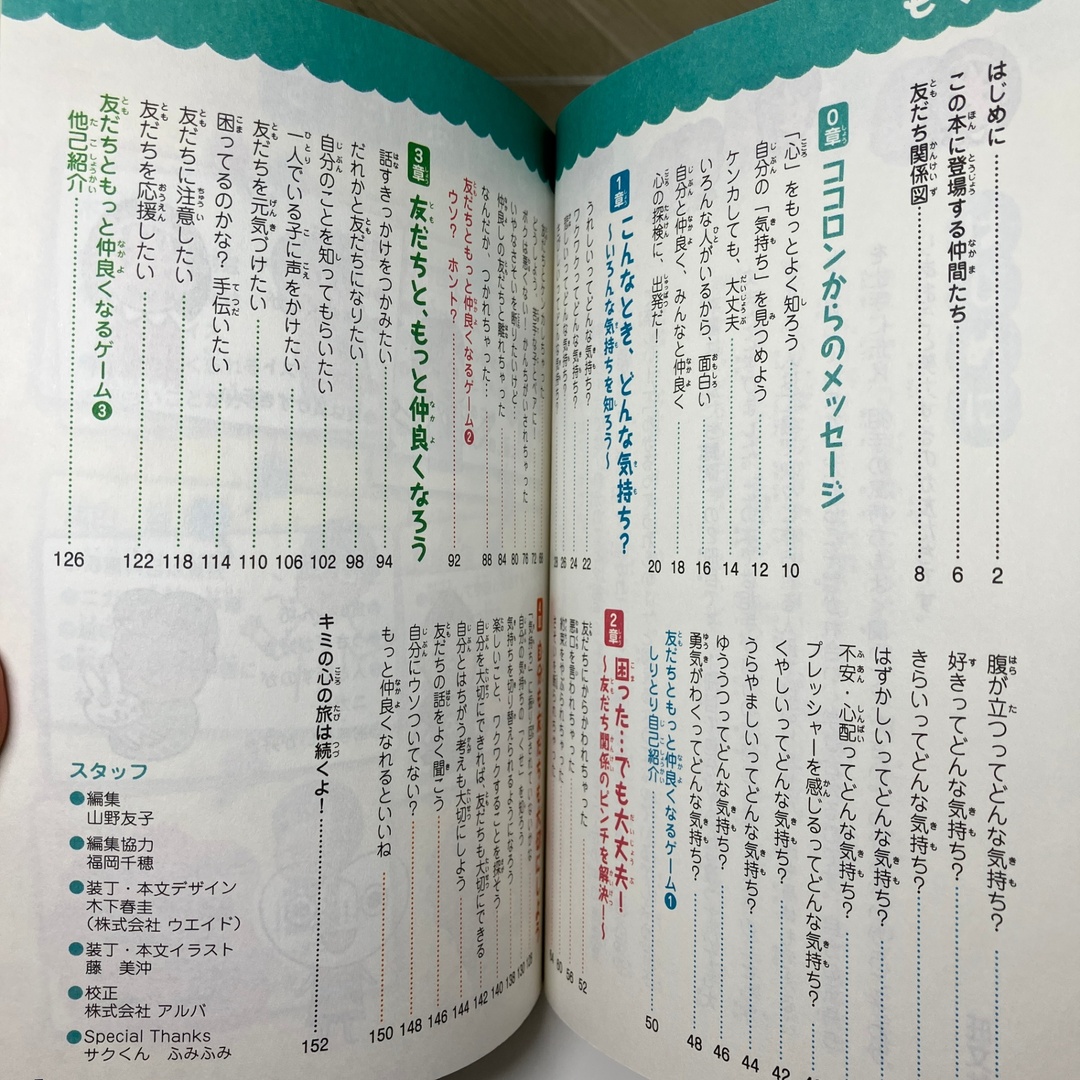 はじめに 2
この本に登場する仲間たち 6
友だち関係図 8
0章 ココロンからのメッセージ
「心」をもっとよく知ろう 10
自分の「気持ち」を見つめよう 12
ケンカしても、大丈夫 14
いろんな人がいるから、面白い 16
自分と仲良く、みんなと仲良く 18
心の探検に、出発だ! 20
1章 こんなとき、どんな気持ち?
〜いろんな気持ちを知ろう〜
うれしいってどんな気持ち? 22
ワクワクってどんな気持ち? 24
腹が立つってどんな気持ち?
好きってどんな気持ち?
きらいってどんな気持ち?
はずかしいってどんな気持ち?
不安・心配ってどんな気持ち?
プレッシャーを感じるってどんな気持ち?
くやしいってどんな気持ち? 42
うらやましいってどんな気持ち? 44
ゆううつってどんな気持ち? 46
勇気がわくってどんな気持ち? 48
友だちともっと仲良くなるゲーム❶
しりとり自己紹介 50
2章 困った…でも大丈夫!
〜友だち関係のピンチを解決!〜
友だちにからかわれちゃった 52
悪口を言われちゃった 56
いやなさそいを断りたいけど… 80
仲良しの友だちと離れちゃった 84
なんだか、つかれちゃった… 88
友だちともっと仲良くなるゲーム❷
ウソ? ホント? 92
3章 友だちと、もっと仲良くなろう
話すきっかけをつかみたい 94
だれかと友だちになりたい 98
自分のことを知ってもらいたい 102
一人でいる子に声をかけたい 106
友だちを元気づけたい 110
困ってるのかな? 手伝いたい 114
友だちに注意したい 118
友だちを応援したい 122
友だちともっと仲良くなるゲーム❸
他己紹介 126
気持ちを切り替えられるようになろう 138
楽しいこと、ワクワクすることを探そう 140
自分を大切にできれば、友だちも大切にできる 142
自分とはちがう考えも大切にしよう 144
友だちの話をよく聞こう 146
自分にウソついてない? 148
もっと仲良くなれるといいね 150
キミの心の旅は続くよ! 152
スタッフ
●編集
山野友子
●編集協力
福岡千穂
●装丁・本文デザイン
木下春圭
(株式会社 ウエイド)
●装丁・本文イラスト
藤 美沖
●校正
株式会社 アルバ
●Special Thanks
サクくん ふみふみ